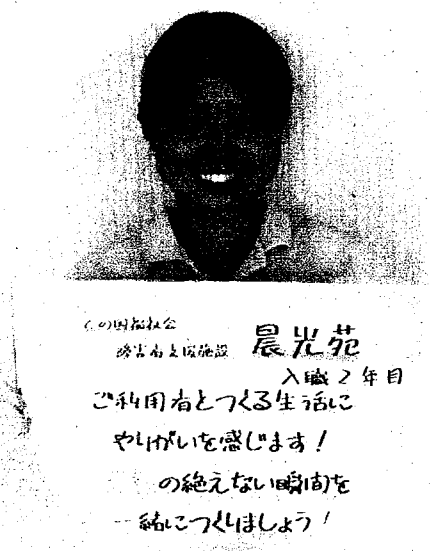 の国福祉会
障害者支援施設 晨光苑
入職2年目
ご利用者とつくる生活に
やりがいを感じます!
の絶えない瞬間を
緒につくりましょう!